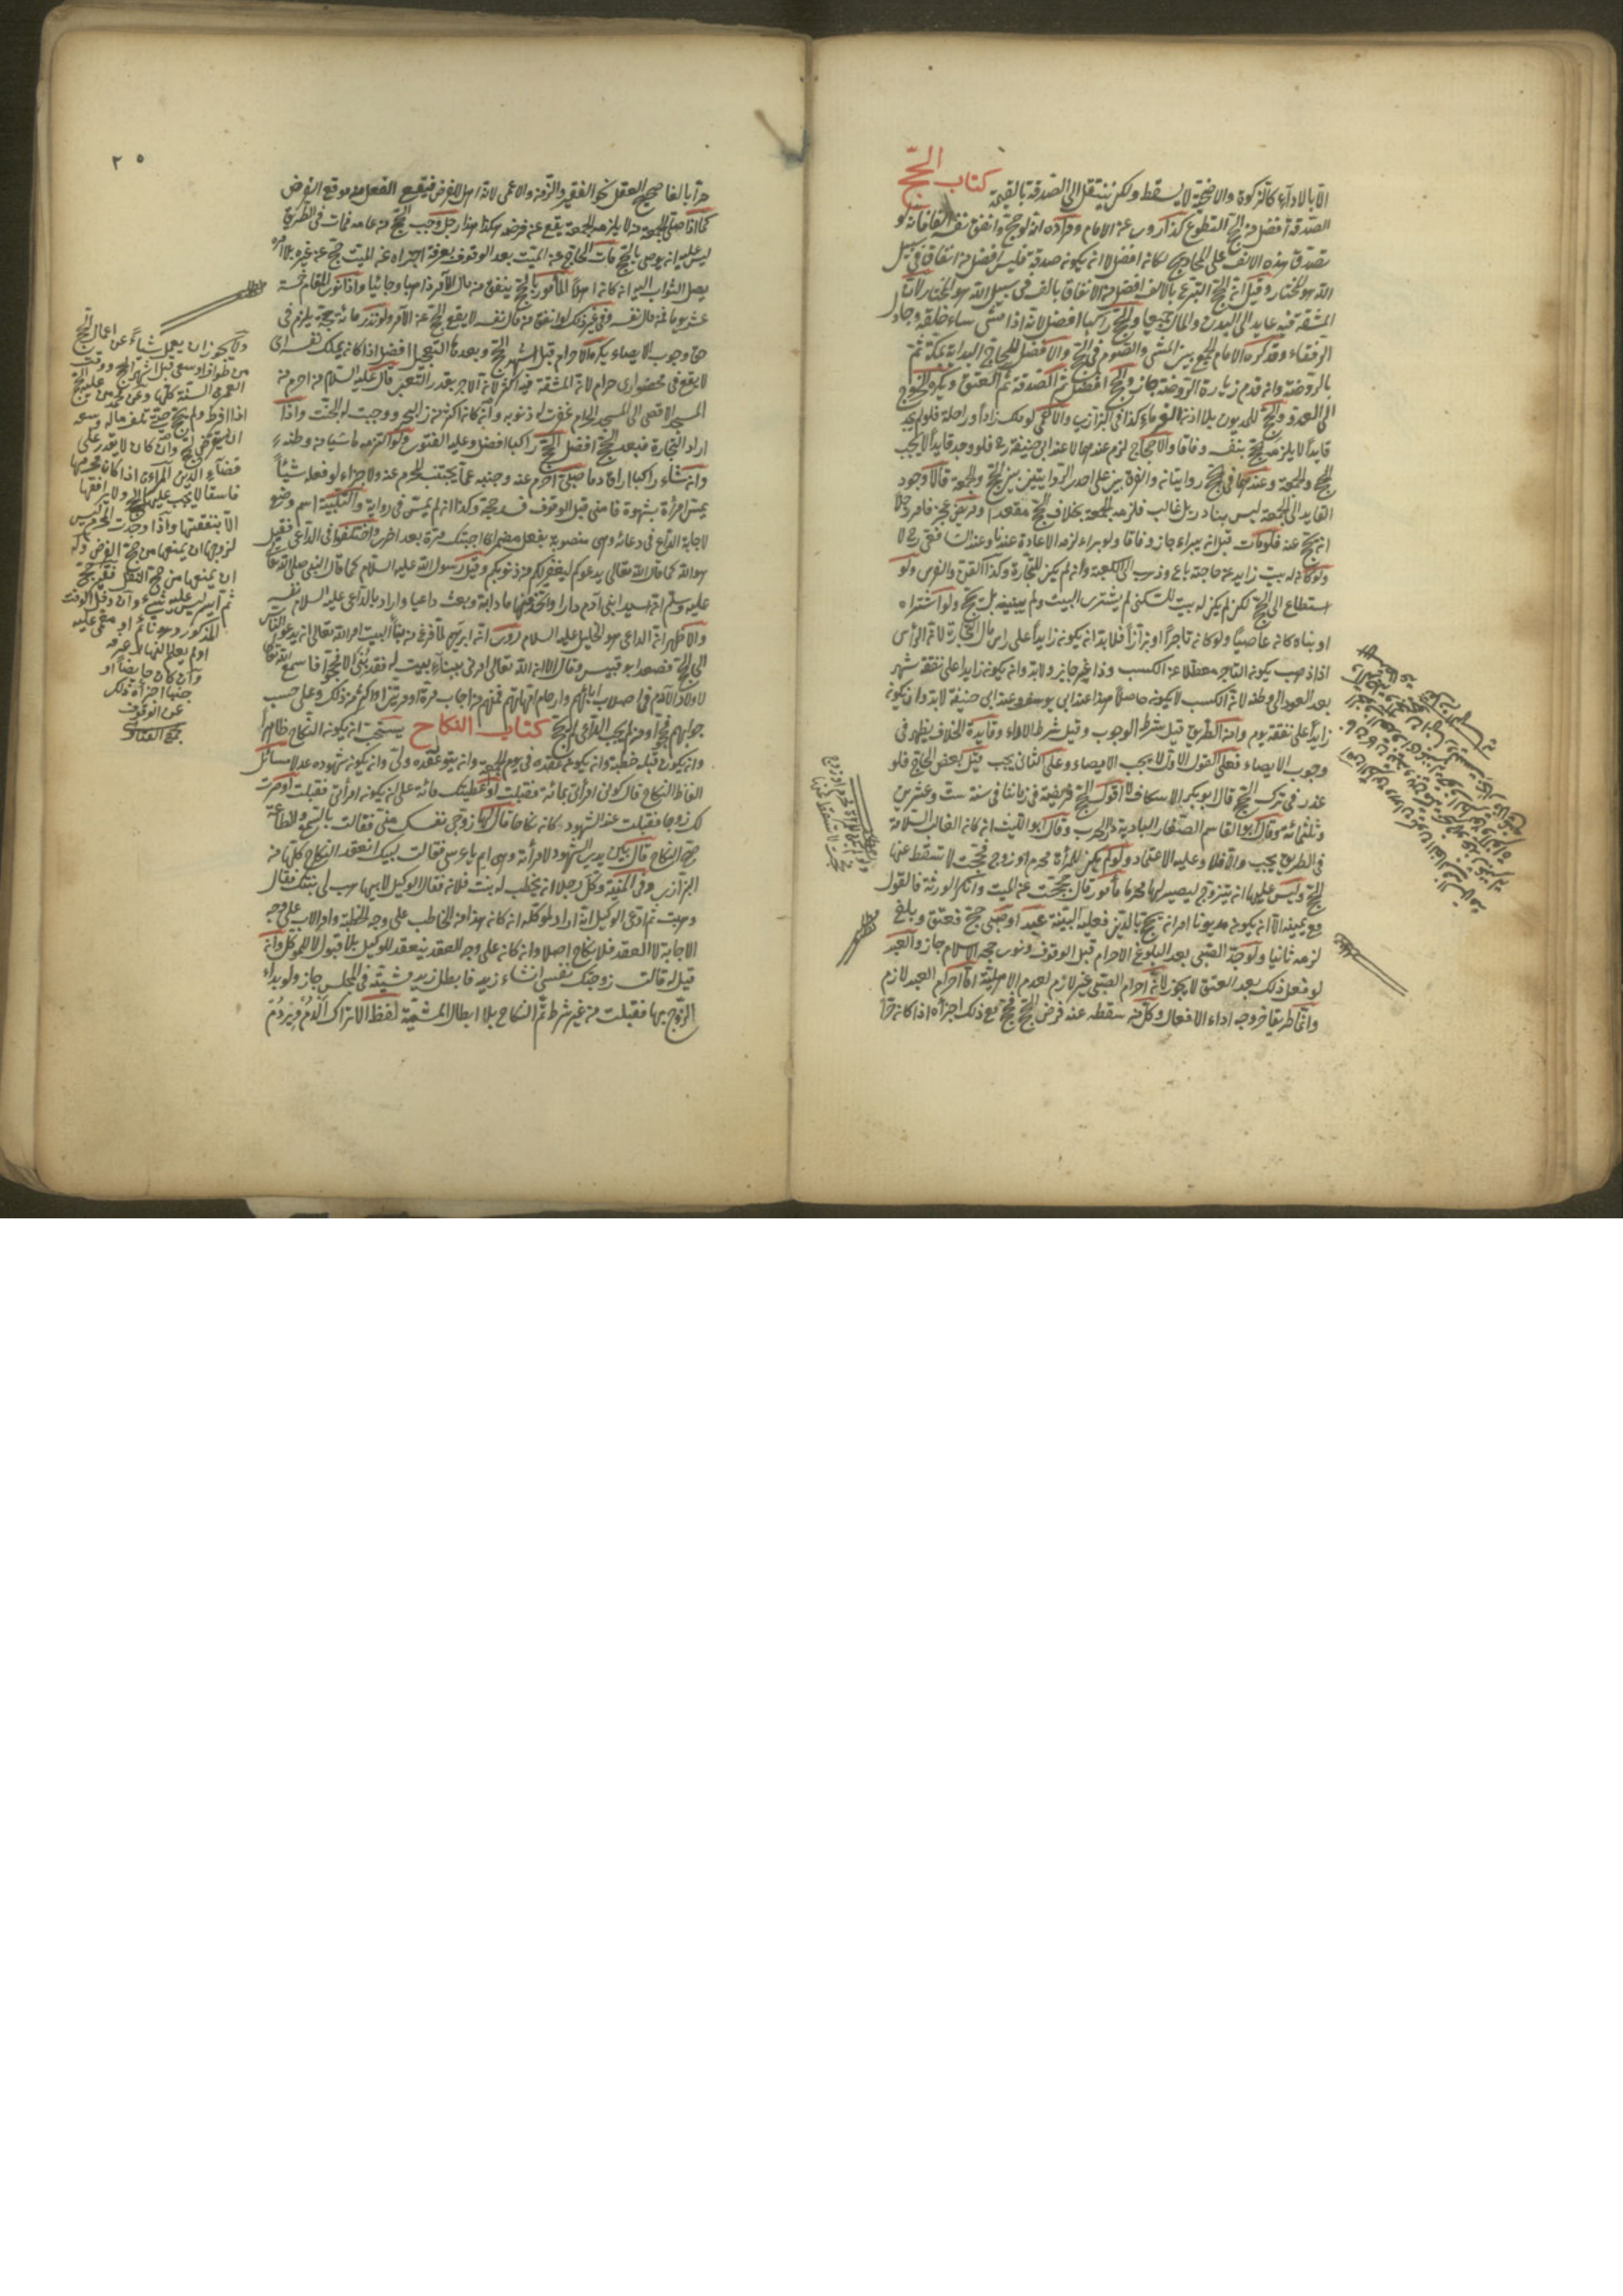 الا بالاداء كالزكوة والاضحية لا يسقط ولكن ينتقل الى الصدقة بالقيمة كتاب الحج
الصدقة افضل من الحج التطوع كذا روى عن الامام ومراده انه لو حج وانفق نفقة لو
تصدق بهذه الالف على المحاويج لكان افضل لا ان يكون صدقة فليس افضل من انفاق في سبيل
الله هو المختار وقيل ان الحج التبرع بالالف افضل من الانفاق بالف في سبيل الله هو المختار لان
المشقة فيه عايد الى البدن والمال جميعا والحج راكبا افضل لانه اذا مشى ساء خلقه وجادل
الرفقاء وقد كره الامام الجمع بين المشي والصوم في الحج والافضل للحاج البداية بمكة ثم
بالروضة وان قدم زيارة الروضة جاز والحج افضل ثم الصدقة ثم العتق ويكره الخروج
الى الغزو والحج للمديون بلا اذن الغرماء كذا في البزازية والاعمى لو ملك زادا وراحلة فلو لم يجد
قايدا لا يلزمه الحج بنفسه وفاقا والاحجاج لزم عندهما لا عند ابي حنيفة فلو وجد قايدا لا يجب
الحج والجمعة وعندهما في الحج روايتان والفرق بين على احدى الروايتين بين الحج والجمعة قالا وجود
القايد الى الجمعة ليس بنادر بل غالب فلزمه الجمعة بخلاف الحج مقعد او مريض عجز فامر رجلا
ان يحج عنه فلو مات قبل ان يبراء جاز وفاقا ولو براء لزمه الاعادة عندنا وعند الشافعي لا
ولو كان له بيت زايد عن حاجته باع وذهب الى الكعبة وان لم يكن للتجارة وكذا القن والفرس ولو
استطاع الى الحج لكن لم يكن له بيت للسكنى لم يشتر البيت ولم يبنه بل يحج ولو اشتراه
او بناه كان عاصيا ولو كان تاجرا او بزازا فلا بد ان يكون زايدا على راس مال التجارة لان الرأس
اذا ذهب يكون التاجر معطلا عن الكسب وذا غير جايز ولا بد وان يكون زايدا على نفقة شهر
بعد العود الى وطنه لان الكسب لا يكون حاصلا هذا عند ابي يوسف وعند ابي حنيفة لا بد وان يكون
زايدا على نفقة يوم وامن الطريق قيل شرط الوجوب وقيل شرط الاداء وفايدة الخلاف يظهر في
وجوب الايصاء فعلى القول الاول لا يجب الايصاء وعلى الثاني يجب قتل بعض الحاج فلو
عذر في ترك الحج قال ابو بكر الاسكاف لا اقول الحج فريضة في زماننا في سنة ست وعشرين
وثلثمائة وقال ابو القاسم الصفار البادية دار الحرب وقال ابو الليث ان كان الغالب السلامة
في الطريق يجب والا فلا وعليه الاعتماد ولو لم يكن للمرأة محرم او زوج فحجت لا تسقط عنها
الحج وليس عليها ان يتزوج ليصير لها محرما مأمور قال حججت عن الميت وانكر الورثة فالقول
مع يمينه الا ان يكون مديونا امر ان يحج بالدين فعليه البينة عبد او صبي حج فعتق وبلغ
لزمه ثانيا ولو جدد الصبي بعد البلوغ الاحرام قبل الوقوف ونوى حجة الاسلام جاز والعبد
لو فعل ذلك بعد العتق لا يجوز لان احرام الصبي غير لازم لعدم الاهلية اما احرام العبد لازم
وانما طريقا خروجه اداء الافعال وكل من سقط عنه فرض الحج فحج مع ذلك اجزأه اذا كان حرا
ولو لم يكن للمرأة محرم او زوج
حجت لا تسقط عنها
٢٥
حرا بالغا صحيح العقل نحو الفقير والزمن والاعمى لانه اهل للفرض فيقع الفعل منه موقع الفرض
كما اذا صلى الجمعة من لا يلزمه الجمعة يقع عن فرضه هكذا هذا رجل وجب الحج من عامه فمات في الطريق
ليس عليه ان يوصي بالحج مات الحاج عن الميت بعد الوقوف بعرفة اجزاه عن الميت حج عن غيره بلا امره
يصل الثواب اليه ان كان اهلا المأمور بالحج ينفق من مال الآمر ذاهبا وجائيا واذا نوى المقام خمسة
عشر يوما فمن مال نفسه وفي غير ذلك لو انفق من مال نفسه لا يقع الحج عن الآمر ولو نذر مائة حجة يلزم في
حق وجوب الايصاء يكره الاحرام قبل اشهر الحج وبعدها التعجيل افضل اذا كان يملك نفسه اي
لا يقع في محظورات حرام لان المشقة فيه اكثر لان الاجر بقدر التعب قال عليه السلام من احرم من
المسجد الاقصى الى المسجد الحرام غفرت له ذنوبه وان كان اكثر من زبد البحر ووجبت له الجنة واذا
اراد التجارة فبعد الحج افضل الحج راكبا افضل وعليه الفتوى ولو اكترى ماشيا من وطنه
وان شاء راكبا اراق دما صلى احرم عنه وجنبه عما يجتنب المحرم عنه ولا جزاء لو فعله شيئا
يمس امرأة بشهوة فامنى قبل الوقوف فسد حجه وكذا ان لم يمن في رواية والتلبية اسم وضع
لاجابة الداع في دعائه وهي منصوبة بفعل مضمر اي اجيتك مرة بعد اخرى واختلفوا في الداعي فقيل
هو الله كما قال الله تعالى يدعوكم ليغفر لكم من ذنوبكم وقيل رسول الله عليه السلام كما قال النبي صلى الله تعالى
عليه وسلم ان سيد ابني آدم دارا واتخذ فيها مادبة وبعث داعيا واراد بالداعي عليه السلام نفسه
والاظهر ان الداعي هو الخليل عليه السلام روى ان ابرهيم لما فرغ من بناء البيت امر الله تعالى ان يدعو الناس
الى الحج فصعد ابو قبيس وقال الا ان الله تعالى امرني ببناء بيت له فقد بني الا فحجوا فاسمع الله تعالى
لاولاد الآدم في اصلاب آبائهم وارحام امهاتهم فمنهم من اجاب مرة او مرتين او اكثر من ذلك وعلى حسب
جوابهم حجوا ومن لم يجب الداعي لم يحج كتاب النكاح يستحب ان يكون النكاح ظاهرا
وان يكون قبله خطبة وان يكون عقده في يوم الجمعة وان يتولى عقده ولي وان يكون شهوده عدلا مسائل
الفاظ النكاح قال كوني امرأتي بمائة فقبلت او اعطيتك مائة على ان يكون امرأتي فقبلت او صرت
لك زوجا فقبلت عند الشهود كان نكاحا قال لها زوجي نفسك مني فقالت بالسمع والطاعة
صح النكاح قال بين يدي الشهود لامرأة وهي ايم يا عرسي فقالت لبيك انعقد النكاح كلها من
البزازي وفي المنية وكل رجلا ان يخطب له بنت فلان فقال الوكيل لابيها هب لي بنتك فقال
وهبت ثم ادعى الوكيل انه اراد لموكله ان كان هذا من الخاطب على وجه الخطبة ومن الاب على وجه
الاجابة لا العقد فلا نكاح اصلا وان كان على وجه العقد ينعقد للوكيل بلا قبول لا للموكل وان
قيل له قالت زوجتك نفسي ان شاء زيد فابطل زيد مشيته في المجلس جاز ولو بداء
الزوج بها فقبلت من غير شرط تم النكاح بلا ابطال المشية لفظ الاتراك
ولا يجوز ان يعمل شياء عن اعمال الحج
من طواف او سعي قبل اشهر الحج ووقت
العمرة السنة كلها وعن محمد من عليه الحج
اذا افرط ولم يحج حتى تلف ماله وسعه
ان يستقرض للحج وان كان لا يقدر على
قضاء الدين المرأة اذا كان محرمها
فاسقا لا يجب عليها الحج ولا يرافقها
الا بنفقتها واذا وجدت المحرم ليس
لزوجها ان يمنعها من حجة الفرض وله
ان يمنعها من حجة النفل فقير حج
ثم ايسر ليس عليه شيء وان دخل الوقت
المذكور وهو نائم او مغمى عليه
او لم يعلم انها عرفة
وان كان حايضا او
جنبا اجزأه ذلك
عن الوقوف
مجمع الفتاوى